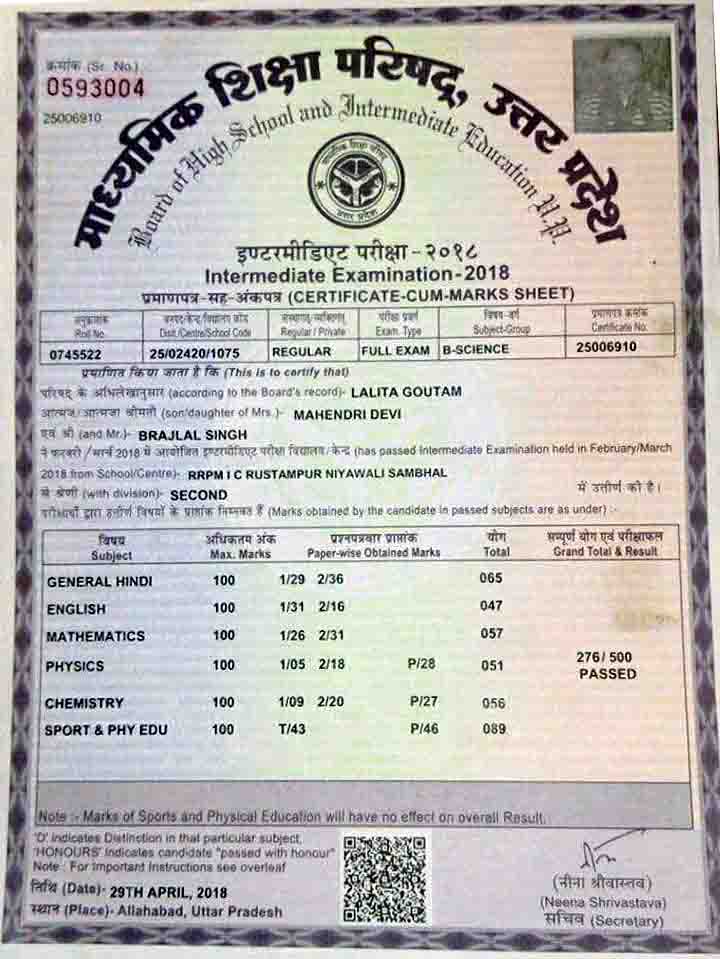 क्रमांक (Sr. No.)
0593004
25006910
माध्यमिक शिक्षा परिषद्, उत्तर प्रदेश
Board of High School and Intermediate Education U.P.
माध्यमिक शिक्षा परिषद्
उत्तर प्रदेश
इण्टरमीडिएट परीक्षा - २०१८
Intermediate Examination - 2018
प्रमाणपत्र-सह-अंकपत्र (CERTIFICATE-CUM-MARKS SHEET)
अनुक्रमांक जनपद/केन्द्र/विद्यालय कोड संस्थागत/व्यक्तिगत परीक्षा प्रवर्ग विषय-वर्ग प्रमाणपत्र क्रमांक
Roll No. Distt./Centre/School Code Regular / Private Exam. Type Subject-Group Certificate No.
0745522 25/02420/1075 REGULAR FULL EXAM B-SCIENCE 25006910
प्रमाणित किया जाता है कि (This is to certify that)
परिषद के अभिलेखानुसार (according to the Board's record)- LALITA GOUTAM
आत्मज/आत्मजा श्रीमती (son/daughter of Mrs.)- MAHENDRI DEVI
एवं श्री (and Mr.)- BRAJLAL SINGH
ने फरवरी / मार्च 2018 में आयोजित इण्टरमीडिएट परीक्षा विद्यालय/केन्द्र (has passed Intermediate Examination held in February/March
2018 from School/Centre)- RRPM I C RUSTAMPUR NIYAWALI SAMBHAL
में श्रेणी (with division)- SECOND में उत्तीर्ण की है।
परीक्षार्थी द्वारा उत्तीर्ण विषयों के प्राप्तांक निम्नवत हैं (Marks obtained by the candidate in passed subjects are as under) :-
विषय अधिकतम अंक प्रश्नपत्रवार प्राप्तांक योग सम्पूर्ण योग एवं परीक्षाफल
Subject Max. Marks Paper-wise Obtained Marks Total Grand Total & Result
GENERAL HINDI 100 1/29 2/36 065
ENGLISH 100 1/31 2/16 047
MATHEMATICS 100 1/26 2/31 057
PHYSICS 100 1/05 2/18 P/28 051 276/ 500
PASSED
CHEMISTRY 100 1/09 2/20 P/27 056
SPORT & PHY EDU 100 T/43 P/46 089
Note :- Marks of Sports and Physical Education will have no effect on overall Result.
'D' indicates Distinction in that particular subject.
'HONOURS' Indicates candidate "passed with honour"
Note : For Important Instructions see overleaf
तिथि (Date)- 29TH APRIL, 2018
स्थान (Place)- Allahabad, Uttar Pradesh
(नीना श्रीवास्तव)
(Neena Shrivastava)
सचिव (Secretary)